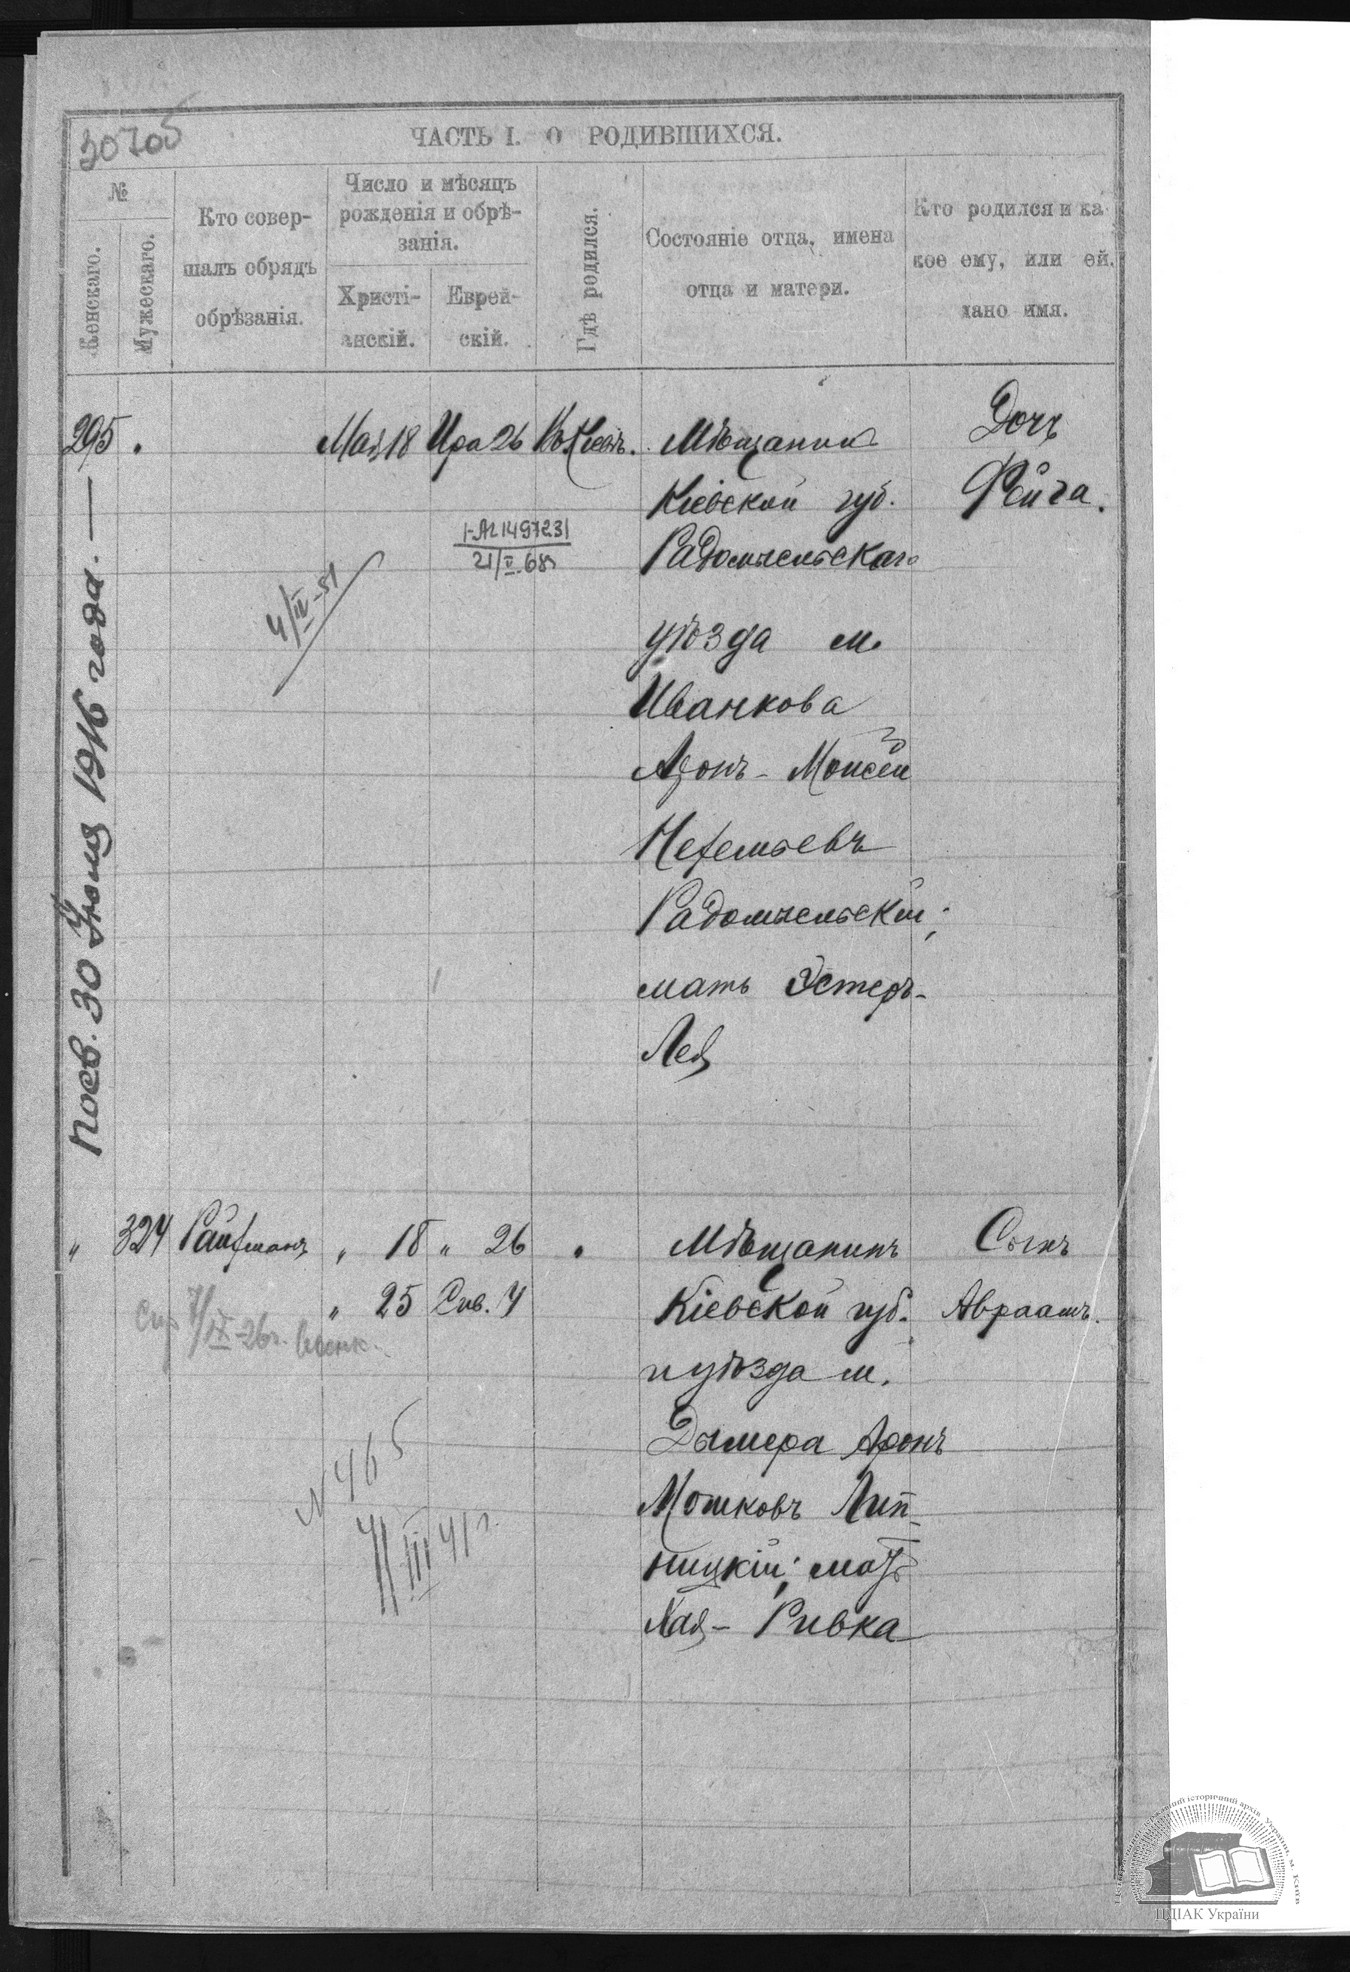 30705
ЧАСТЬ I. О РОДИВШИХСЯ.
№
Женскаго.
Мужескаго.
Кто совер-
шалъ обрядъ
обрѣзанія.
Число и мѣсяцъ
рожденія и обрѣ-
занія.
Христі-
анскій.
Еврей-
скій.
Гдѣ родился.
Состояніе отца, имена
отца и матери.
Кто родился и ка
кое ему, или ей,
дано имя.
295 . Мая 18 Ира 26 Кіевѣ. Мѣщанинъ Дочь
Кіевской губ. Фейга.
Радомысльскаго
21/V.68
4/IV-51
уѣзда м.
Иванкова
Аронъ-Моисей
Радомысльскій;
мать Эстеръ-
Лея
30 Іюля 1916 года. —
" 324 Райфманъ " 18 " 26 " Мѣщанинъ Сынъ
" 25 Сив. 4 Кіевской губ. Авраамъ.
и уѣзда м.
Дымера Аронъ
Мошковъ Лип-
ницкій; мать
Хая-Ривка
7/IX-26г.
N 465
4/III 41 г.
ЦДІАК України